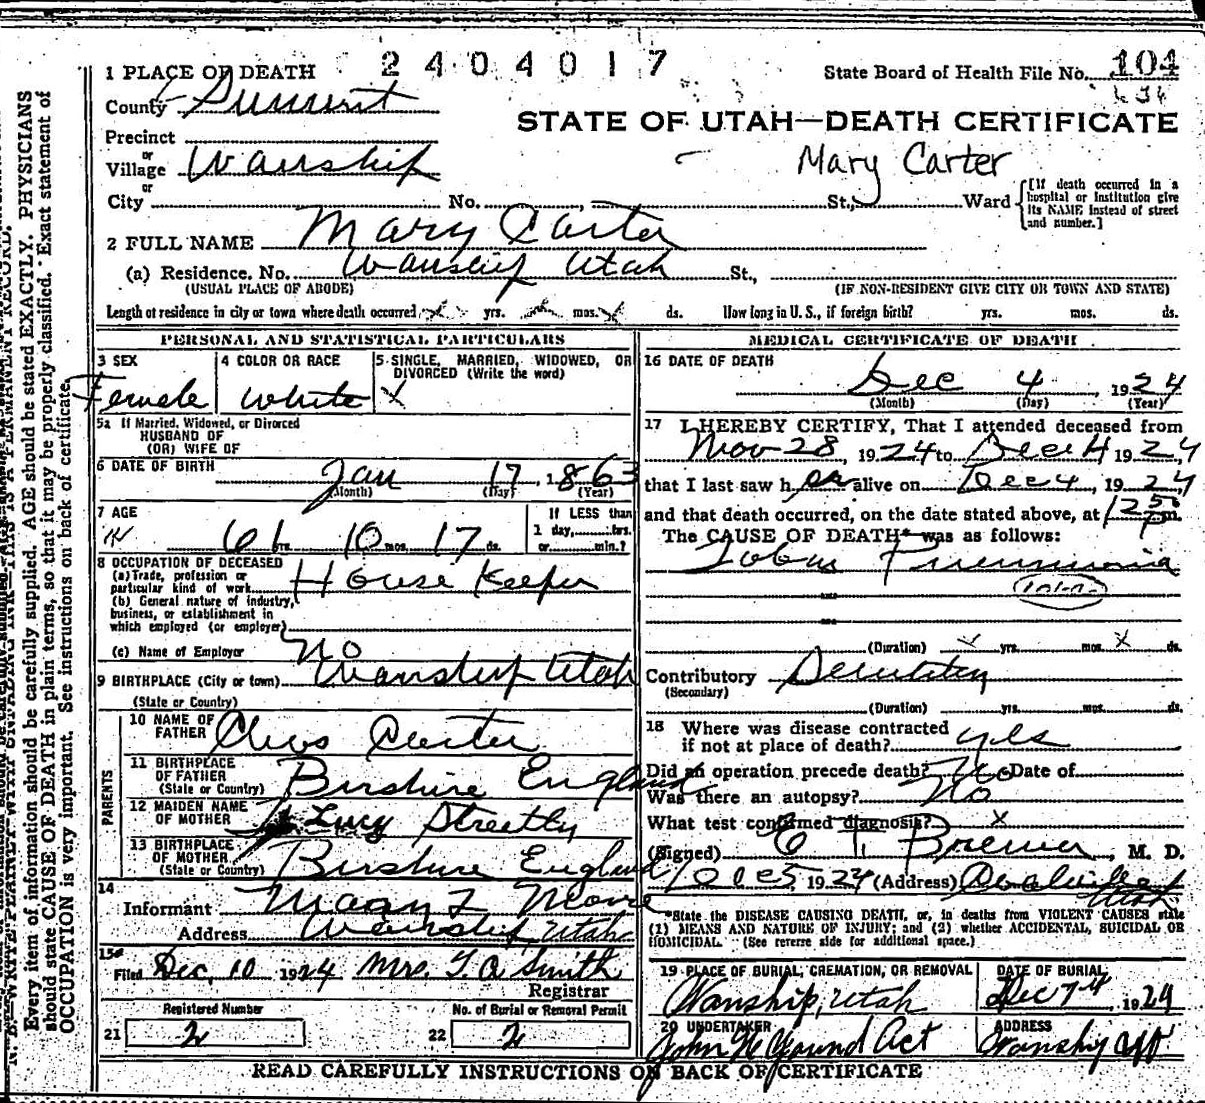 2404017
1 PLACE OF DEATH
State Board of Health File No. 104
County Summit
STATE OF UTAH—DEATH CERTIFICATE
Precinct
or
Village Wanship
Mary Carter
or
City No. St., Ward
[If death occurred in a hospital or institution give its NAME instead of street and number.]
2 FULL NAME Mary Carter
(a) Residence. No. Wanship Utah St.,
(USUAL PLACE OF ABODE) (IF NON-RESIDENT GIVE CITY OR TOWN AND STATE)
Length of residence in city or town where death occurred yrs. mos. ds. How long in U. S., if foreign birth? yrs. mos. ds.
PERSONAL AND STATISTICAL PARTICULARS
3 SEX
Female
4 COLOR OR RACE
White
5 SINGLE, MARRIED, WIDOWED, OR
DIVORCED (Write the word)
X
5a If Married, Widowed, or Divorced
HUSBAND OF
(OR) WIFE OF
6 DATE OF BIRTH Jan 17, 1863
(Month) (Day) (Year)
7 AGE
61 yrs. 10 mos. 17 ds.
If LESS than
1 day, hrs.
or min.?
8 OCCUPATION OF DECEASED
(a) Trade, profession or
particular kind of work House Keeper
(b) General nature of industry,
business, or establishment in
which employed (or employer)
(c) Name of Employer No
9 BIRTHPLACE (City or town) Wanship Utah
(State or Country)
PARENTS
10 NAME OF
FATHER Carter
11 BIRTHPLACE
OF FATHER
(State or Country) England
12 MAIDEN NAME
OF MOTHER Lucy Streetly
13 BIRTHPLACE
OF MOTHER
(State or Country) England
14
Informant Moore
Address Wanship, Utah
15
Filed Dec, 10 1924 Mrs. Smith
Registrar
Registered Number
21 2
No. of Burial or Removal Permit
22 2
MEDICAL CERTIFICATE OF DEATH
16 DATE OF DEATH
Dec 4, 1924
(Month) (Day) (Year)
17 I HEREBY CERTIFY, That I attended deceased from
Nov 28, 1924 to Dec 4 1924
that I last saw her alive on Dec 4, 1924
and that death occurred, on the date stated above, at m.
The CAUSE OF DEATH* was as follows:
Lobar Pneumonia
(Duration) X yrs. mos. X ds.
Contributory
(Secondary)
(Duration) yrs. mos. ds.
18 Where was disease contracted
if not at place of death? yes
Did an operation precede death? No Date of
Was there an autopsy? No
What test confirmed diagnosis? X
(Signed) , M. D.
Dec 5 1924 (Address) Utah
*State the DISEASE CAUSING DEATH, or, in deaths from VIOLENT CAUSES state
(1) MEANS AND NATURE OF INJURY; and (2) whether ACCIDENTAL, SUICIDAL OR
HOMICIDAL. (See reverse side for additional space.)
19 PLACE OF BURIAL, CREMATION, OR REMOVAL
Wanship, Utah
DATE OF BURIAL
Dec 7th 1924
20 UNDERTAKER
John Act
ADDRESS
Wanship
READ CAREFULLY INSTRUCTIONS ON BACK OF CERTIFICATE
Every item of information should be carefully supplied. AGE should be stated EXACTLY. PHYSICIANS
should state CAUSE OF DEATH in plain terms, so that it may be properly classified. Exact statement of
OCCUPATION is very important. See instructions on back of certificate.